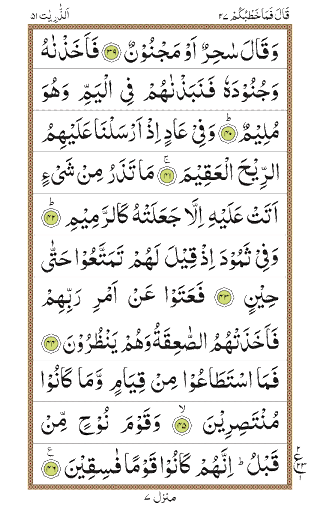 قَالَ فَمَا خَطْبُكُمْ ٢٧ اَلذّٰرِيٰت ٥١
وَقَالَ سٰحِرٌ اَوْ مَجْنُوْنٌ ﴿٣٩﴾ فَاَخَذْنٰهُ
وَجُنُوْدَهٗ فَنَبَذْنٰهُمْ فِى الْيَمِّ وَهُوَ
مُلِيْمٌ ؕ﴿٤٠﴾ وَفِىْ عَادٍ اِذْ اَرْسَلْنَا عَلَيْهِمُ
الرِّيْحَ الْعَقِيْمَ ۚ﴿٤١﴾ مَا تَذَرُ مِنْ شَىْءٍ
اَتَتْ عَلَيْهِ اِلَّا جَعَلَتْهُ كَالرَّمِيْمِ ؕ﴿٤٢﴾
وَفِىْ ثَمُوْدَ اِذْ قِيْلَ لَهُمْ تَمَتَّعُوْا حَتّٰى
حِيْنٍ ﴿٤٣﴾ فَعَتَوْا عَنْ اَمْرِ رَبِّهِمْ
فَاَخَذَتْهُمُ الصّٰعِقَةُ وَهُمْ يَنْظُرُوْنَ ﴿٤٤﴾
فَمَا اسْتَطَاعُوْا مِنْ قِيَامٍ وَّمَا كَانُوْا
مُنْتَصِرِيْنَ ۙ﴿٤٥﴾ وَقَوْمَ نُوْحٍ مِّنْ
قَبْلُ ؕ اِنَّهُمْ كَانُوْا قَوْمًا فٰسِقِيْنَ ﴿٤٦﴾
ع
٢
٢٣
١
منزل ٧